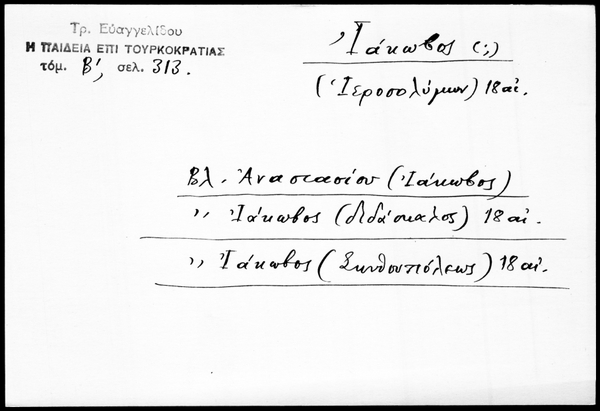 Τρ. Εὐαγγελίδου
Η ΠΑΙΔΕΙΑ ΕΠΙ ΤΟΥΡΚΟΚΡΑΤΙΑΣ
τόμ. Β', σελ. 313.
Ἰάκωβος (;)
(Ἱεροσολύμων) 18 αἰ.
Βλ. Ἀναστασίου (Ἰάκωβος)
,, Ἰάκωβος (διδάσκαλος) 18 αἰ.
,, Ἰάκωβος (Σκυθουπόλεως) 18 αἰ.